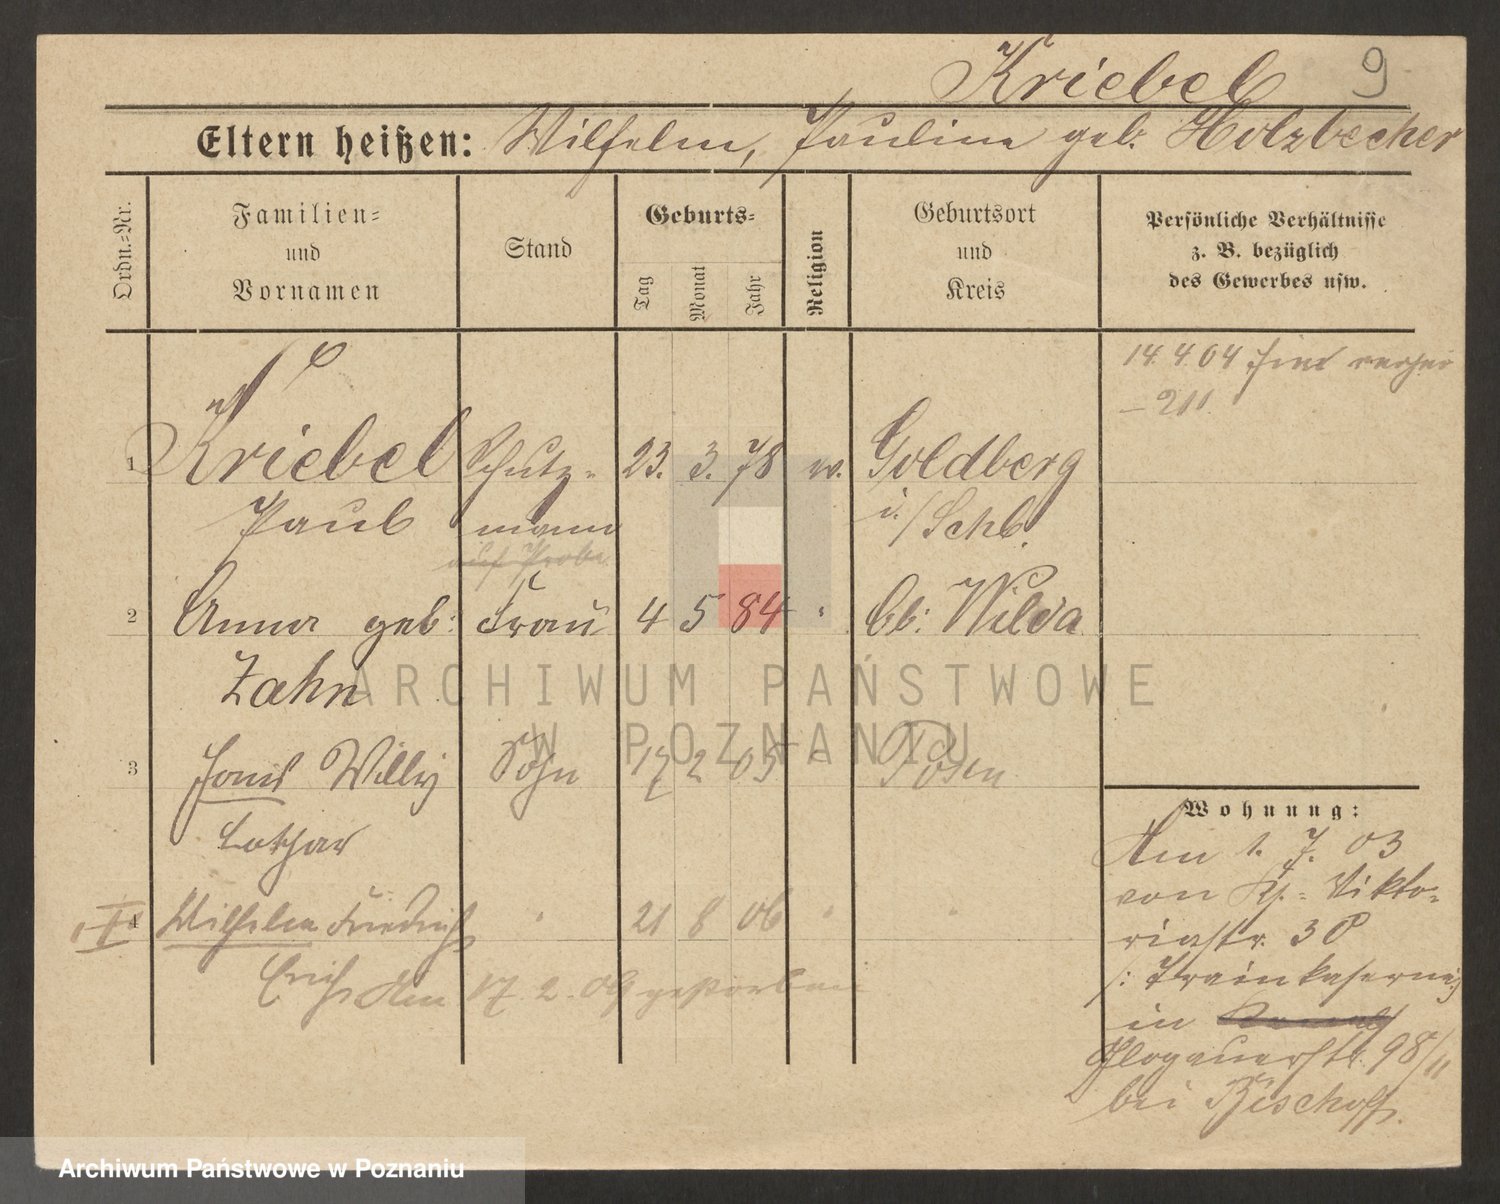 Kriebel 9
Eltern heißen: Wilhelm, Pauline geb. Holzbecher
Ordn.-Nr.
Familien- und Vornamen
Stand
Geburts-
Tag Monat Jahr
Religion
Geburtsort und Kreis
Persönliche Verhältnisse
z. B. bezüglich
des Gewerbes usw.
14.4.04
1 Kriebel Schutz- 23. 3. 78 Goldberg
Paul mann i./Schl.
auf Probe
2 Anna geb. Frau 4 5 84 " bb: Wilda
Zahn
3 Hans Willy Sohn 17 2 05 " Posen
Lothar
4 Wilhelm Friedrich " 21 8 06 " "
Erich Am 17. 2. 09 gestorben
Wohnung:
Am 1. 7. 03
von Vikto-
riastr. 30
/: Trainkaserne :/
in
Glogauerstr. 98/II
bei Bischoff.
ARCHIWUM PAŃSTWOWE
W POZNANIU
Archiwum Państwowe w Poznaniu